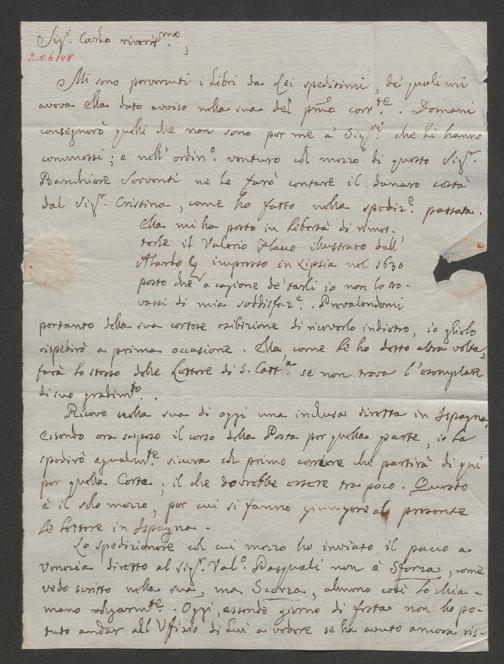 Sig.r Carlo riverit.mo,
I.N. 6148
Mi sono pervenuti i Libri da Lei speditimi, de' quali mi
aveva Ella dato avviso nella sua del pmo corr.te. Domani
consegnerò quelli che non sono per me a' Sig.ri che li hanno
commessi; e nell' ordin.o venturo col mezzo di questo Sig.r
Banchiere Serventi ne Le farò contare il danaro costà
dal Sig.r Cristina, come ho fatto nella spediz.e passata.
Ella mi ha posto in libertà di rimet-
terle il Valerio Flacco illustrato dall'
Alardo impresso in Lipsia nel 1630
posto che a cagione de' tarli io non lo tro-
vassi di mia soddisfaz.e. Prevalendomi
pertanto della sua cortese esibizione di riceverlo indietro, io glielo
rispedirò a prima occasione. Ella come Le ho detto altra volta,
farà lo stesso delle Lettere di S. Catt.a se non trova l'esemplare
di suo gradim.to.
Ricevo nella sua di oggi una inclusa diretta in Ispagna.
Essendo ora sospeso il corso della Posta per quella parte, io La
spedirò egualm.te sicura col primo corriere che partirà di qui
per quella Corte; il che dovrebbe essere tra poco. Questo
è il solo mezzo, per cui si fanno giungere al presente
le lettere in Ispagna.
Lo spedizioniere col cui mezzo ho inviato il pacco a
Venezia diretto al sig.r Val.o Pasquali non è Sforza, come
vedo scritto nella sua, ma Scorza, almeno così lo chia-
mano volgarm.te. Oggi essendo giorno di festa non ho po-
tuto andar all' Ufizio di Lui a vedere se ha avuto ancora ris-